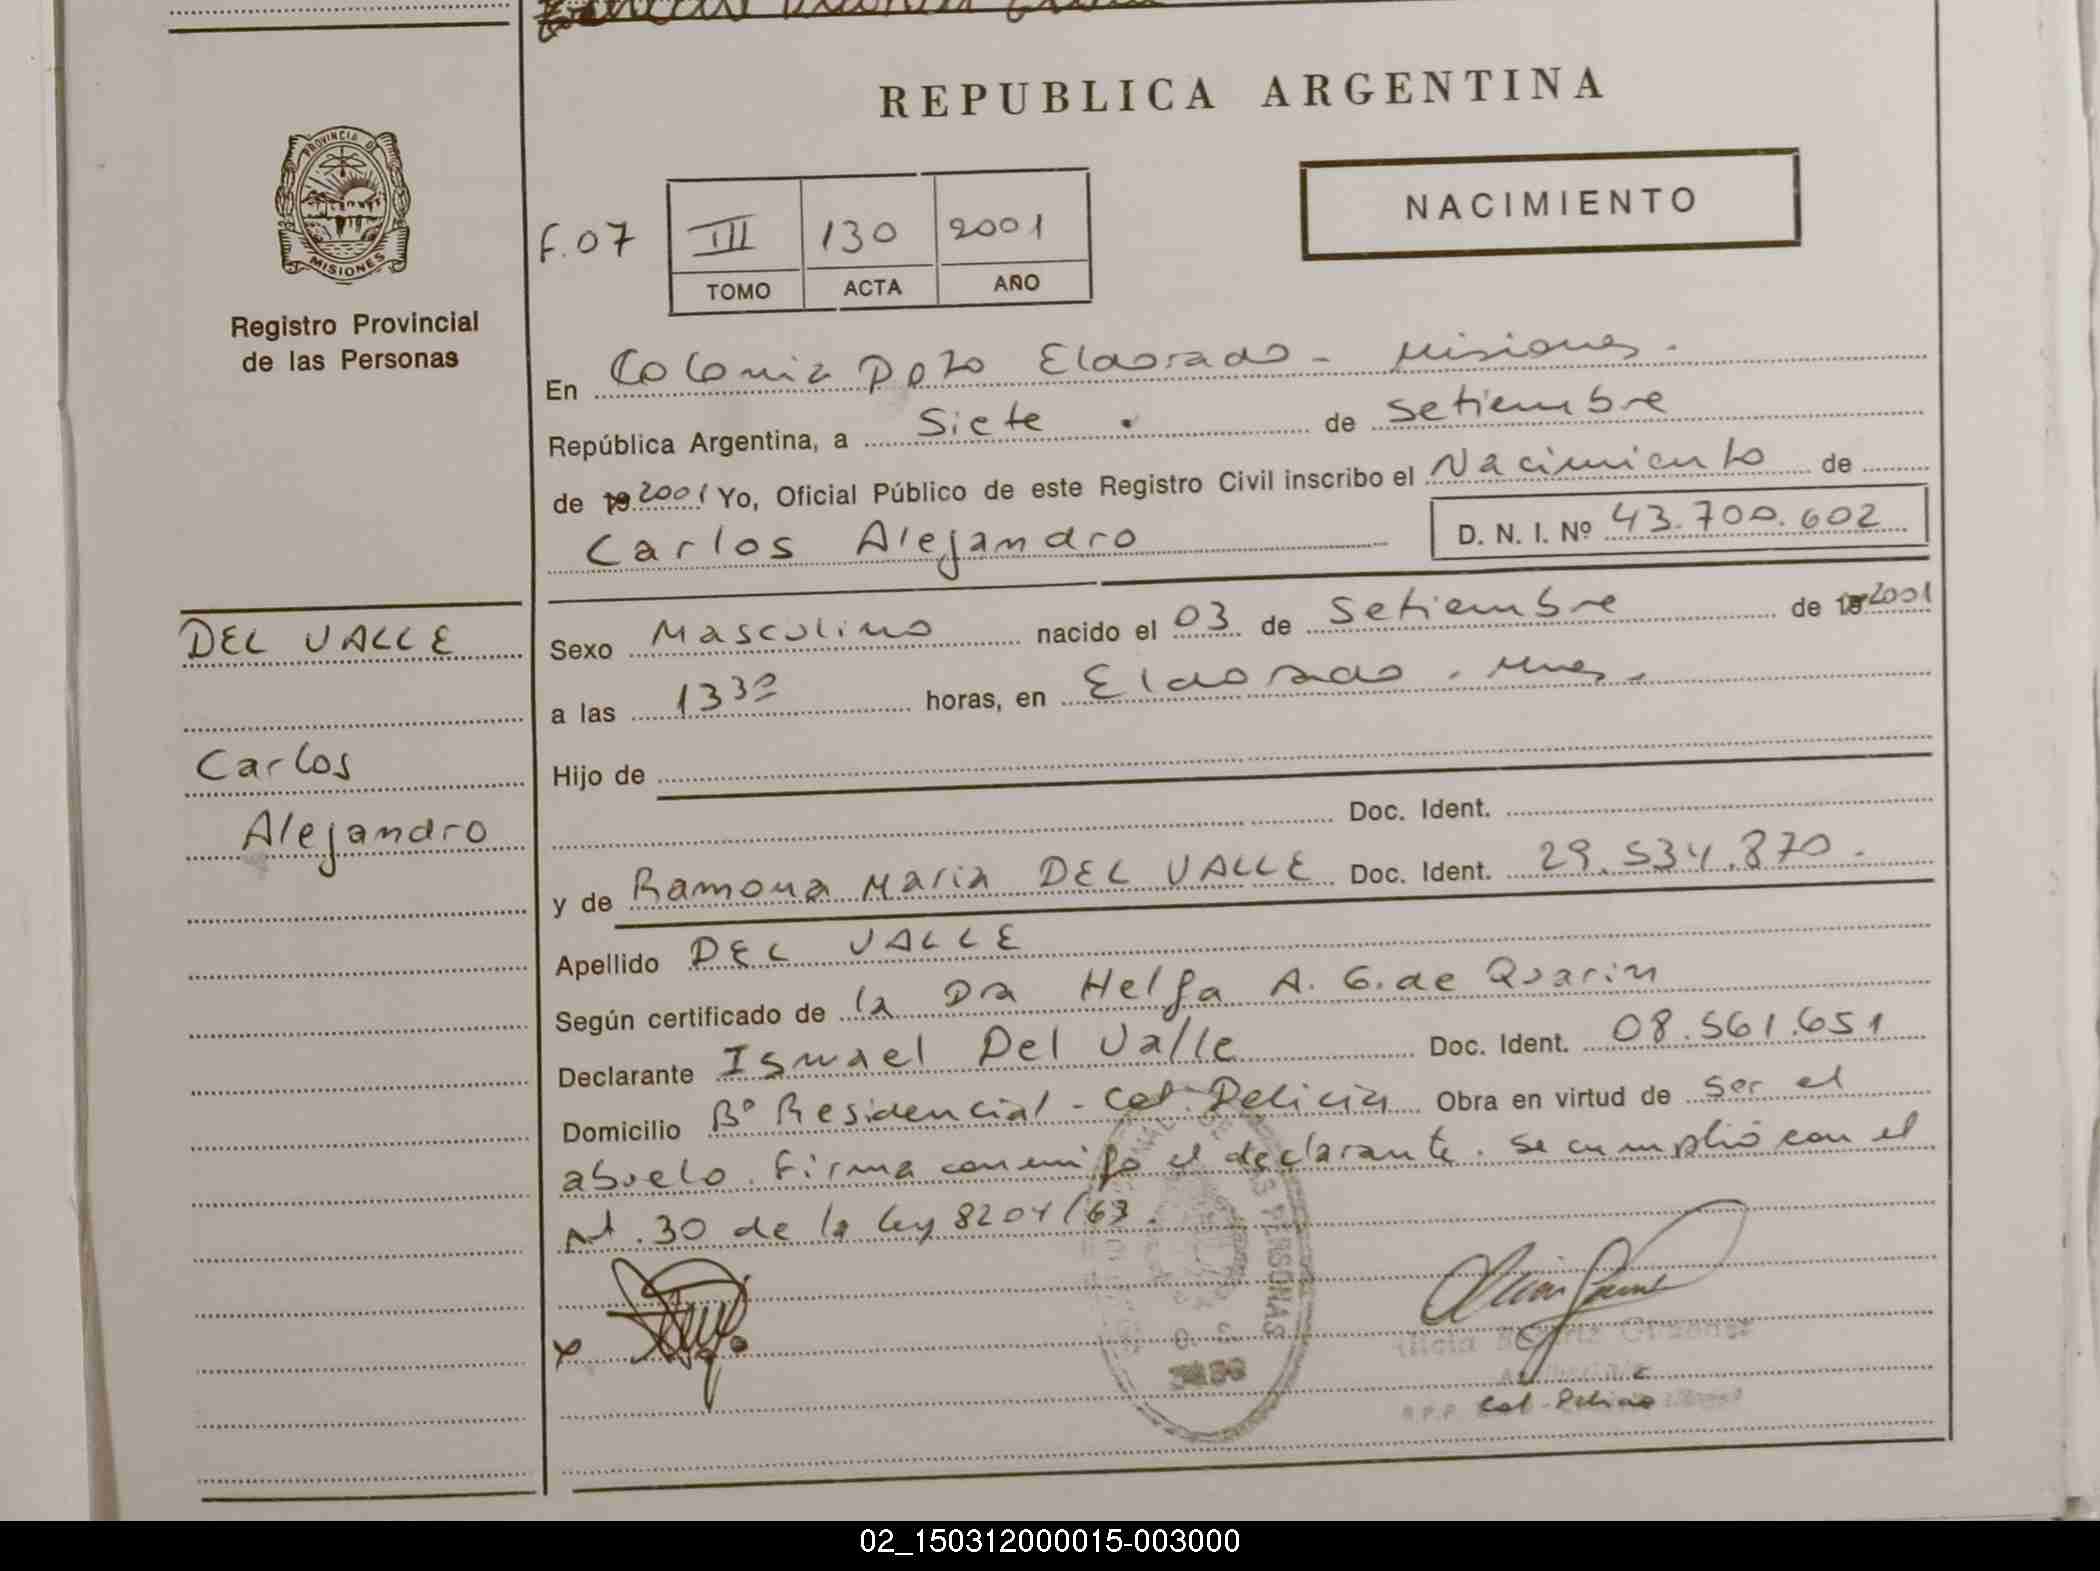 REPUBLICA ARGENTINA
PROVINCIA D
MISIONES
Registro Provincial
de las Personas
F.07
III 130 2001
TOMO ACTA AÑO
NACIMIENTO
En Colonia Dpto Eldorado - Misiones.
República Argentina, a Siete de Setiembre
de 19 2001 Yo, Oficial Público de este Registro Civil inscribo el Nacimiento de
Carlos Alejandro D. N. I. Nº 43.700.602
DEL VALLE
Carlos
Alejandro
Sexo Masculino nacido el 03 de Setiembre de 2001
a las 13 30 horas, en Eldorado. Mnes.
Hijo de
Doc. Ident.
y de Ramona Maria DEL VALLE Doc. Ident. 29.534.870.
Apellido DEL VALLE
Según certificado de la Dra Helga A. G. de Quarin
Declarante Ismael Del Valle Doc. Ident. 08.561.651
Domicilio Bº Residencial - Col. Delicia Obra en virtud de Ser el
abuelo. Firma conmigo el declarante. Se cumplió con el
Art. 30 de la ley 8204/63.
PERSONAS
Col. Delicia
02_150312000015-003000